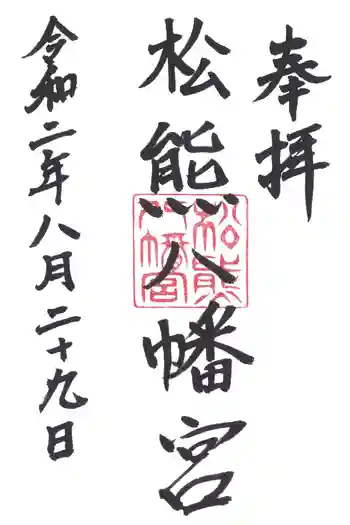 奉拝
松熊八幡宮
松熊八幡宮
令和二年八月二十九日